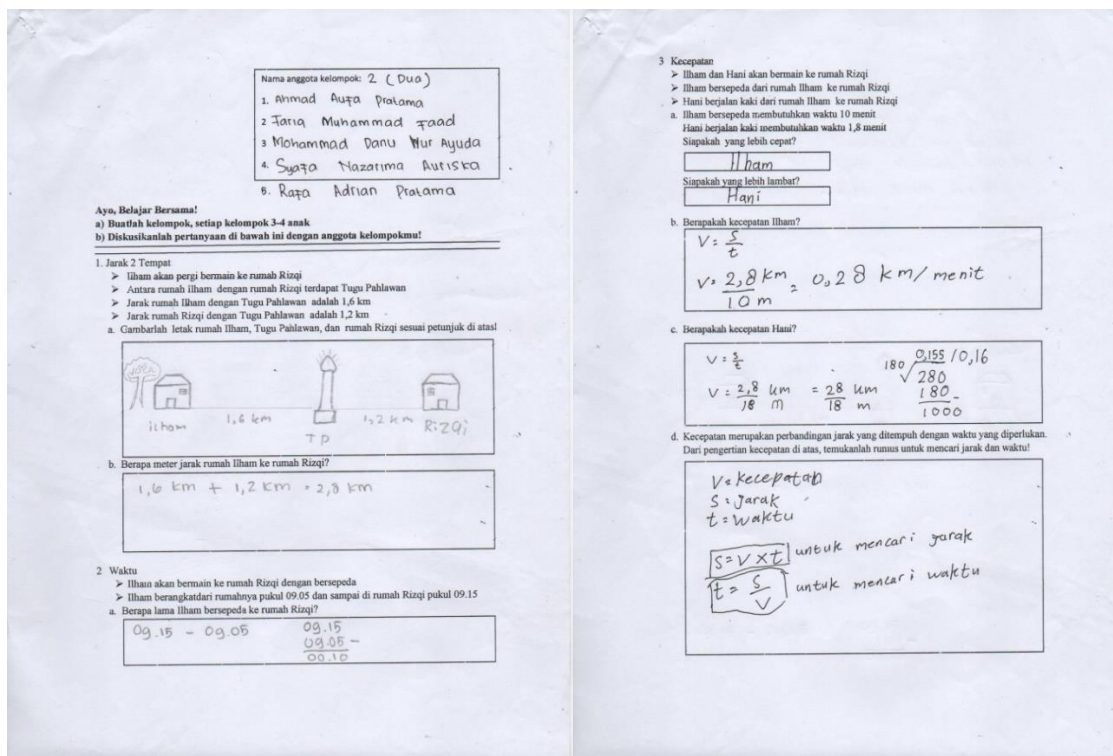 Nama anggota kelompok: 2 (Dua)
1. Ahmad Aufa Pratama
2 Tariq Muhammad Faad
3 Mohammad Danu Nur Ayuda
4. Syafa Nazarima Auriska
5. Rafa Adrian Pratama
Ayo, Belajar Bersama!
a) Buatlah kelompok, setiap kelompok 3-4 anak
b) Diskusikanlah pertanyaan di bawah ini dengan anggota kelompokmu!
1. Jarak 2 Tempat
➢ Ilham akan pergi bermain ke rumah Rizqi
➢ Antara rumah Ilham dengan rumah Rizqi terdapat Tugu Pahlawan
➢ Jarak rumah Ilham dengan Tugu Pahlawan adalah 1,6 km
➢ Jarak rumah Rizqi dengan Tugu Pahlawan adalah 1,2 km
a. Gambarlah letak rumah Ilham, Tugu Pahlawan, dan rumah Rizqi sesuai petunjuk di atas!
ilham 1,6 km TP 1,2 km Rizqi
b. Berapa meter jarak rumah Ilham ke rumah Rizqi?
1,6 km + 1,2 km = 2,8 km
2 Waktu
➢ Ilham akan bermain ke rumah Rizqi dengan bersepeda
➢ Ilham berangkatdari rumahnya pukul 09.05 dan sampai di rumah Rizqi pukul 09.15
a. Berapa lama Ilham bersepeda ke rumah Rizqi?
09.15 - 09.05
09.15
09.05 -
00.10
3 Kecepatan
➢ Ilham dan Hani akan bermain ke rumah Rizqi
➢ Ilham bersepeda dari rumah Ilham ke rumah Rizqi
➢ Hani berjalan kaki dari rumah Ilham ke rumah Rizqi
a. Ilham bersepeda membutuhkan waktu 10 menit
Hani berjalan kaki membutuhkan waktu 1,8 menit
Siapakah yang lebih cepat?
Ilham
Siapakah yang lebih lambat?
Hani
b. Berapakah kecepatan Ilham?
V = S/t
V = 2,8 km/10 m = 0,28 km/menit
c. Berapakah kecepatan Hani?
V = s/t
V = 2,8 km/18 m = 28 km/18 m
0,155 / 0,16
180 √280
180 -
1000
d. Kecepatan merupakan perbandingan jarak yang ditempuh dengan waktu yang diperlukan.
Dari pengertian kecepatan di atas, temukanlah rumus untuk mencari jarak dan waktu!
V = Kecepatan
S = Jarak
t = waktu
S = V x t untuk mencari jarak
t = S/V untuk mencari waktu